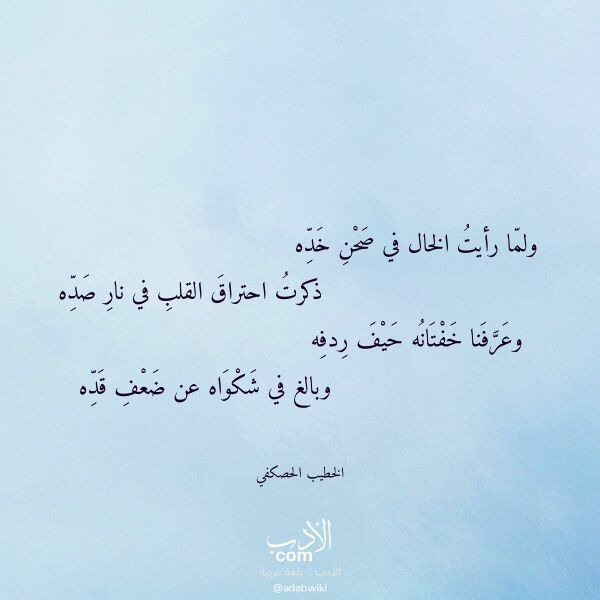 ولمّا رأيتُ الخال في صَحْنِ خَدِّه
ذكرتُ احتراقَ القلبِ في نارِ صَدِّه
وعَرَّفَنا خَفْتَانُه حَيْفَ رِدفِه
وبالغ في شَكْوَاه عن ضَعْفِ قَدِّه
الخطيب الحصكفي
الأدب
com
الأدب .. بلغة عربية
@adabwiki